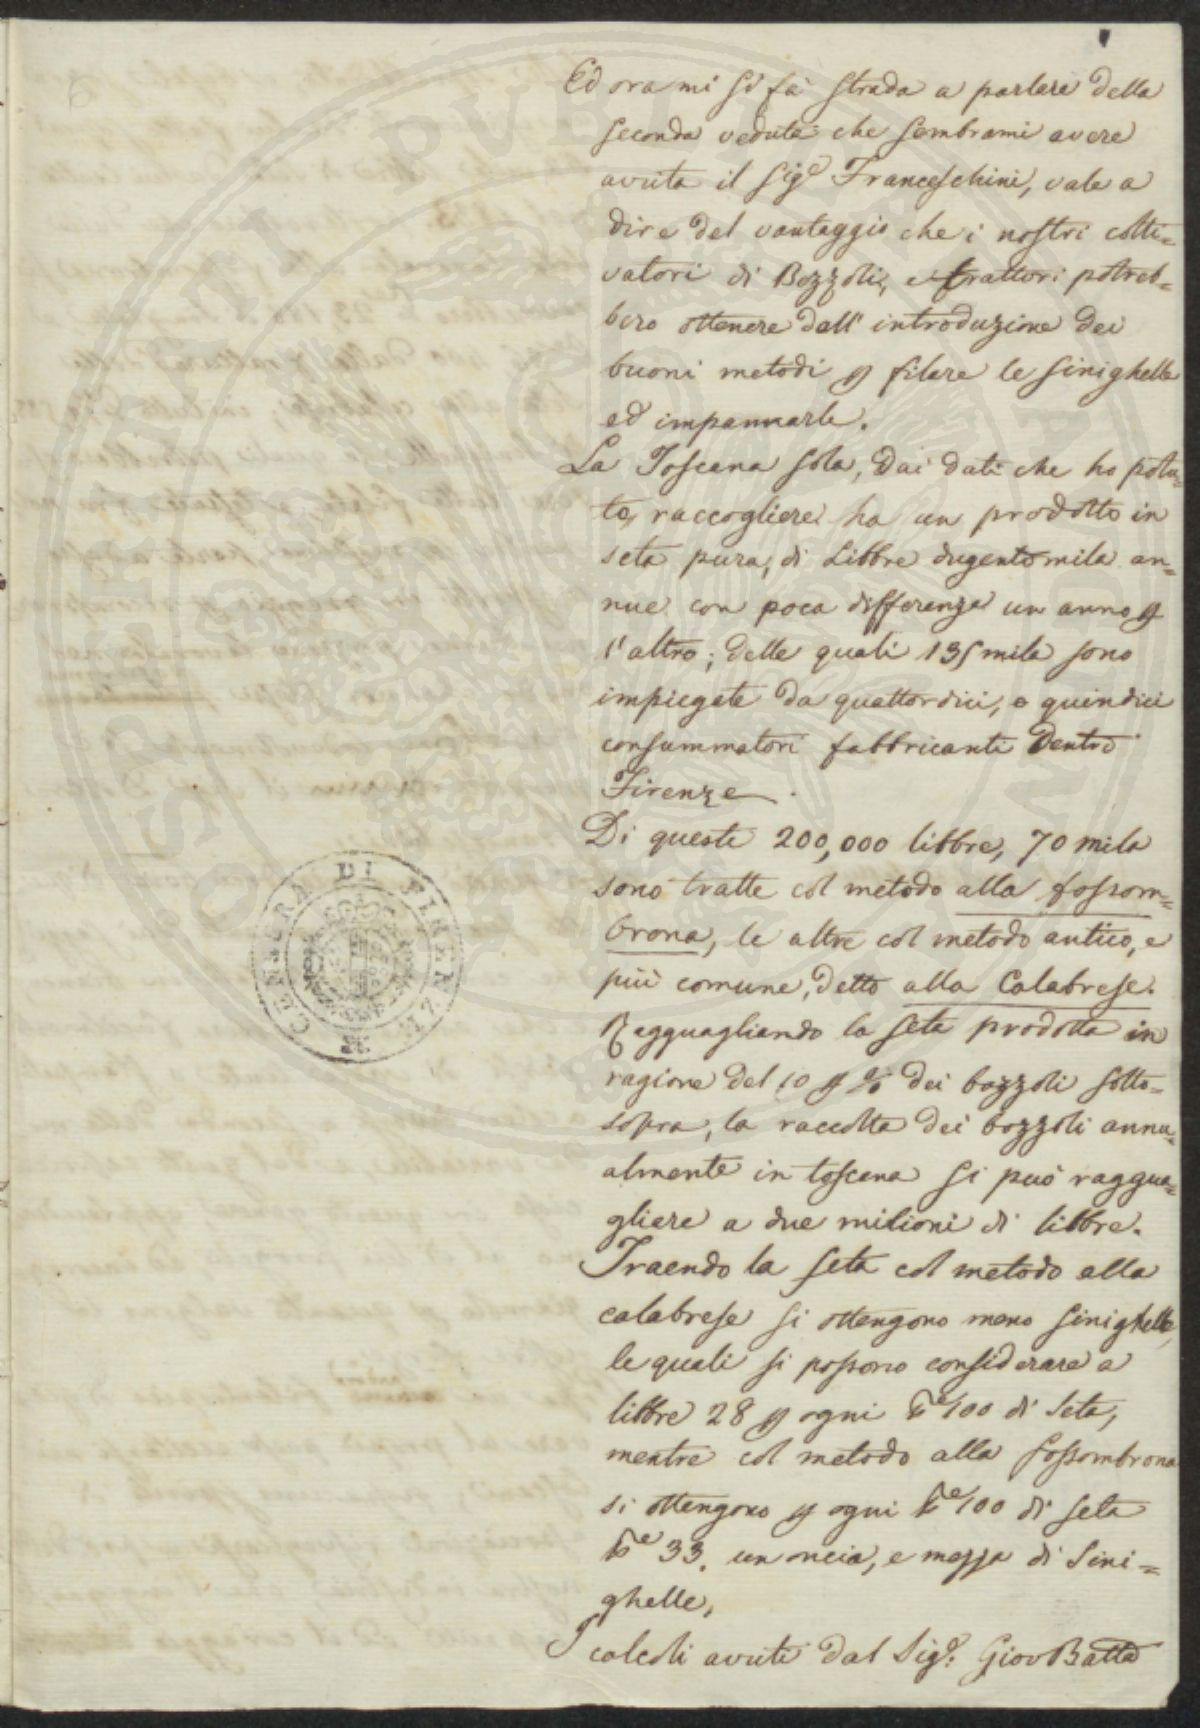 Ed ora mi si fà strada a parlare della
seconda veduta che sembrami avere
avuta il Sigr Franceschini, vale a
dire del vantaggio che i nostri colti=
vatori di Bozzoli, e trattori potreb=
bero ottenere dall' introduzione dei
buoni metodi p filare le sinighelle
ed impannarle.
La Toscana sola, dai dati che ho potu=
to, raccogliere ha un prodotto in
seta pura, di Libbre dugentomila an=
nue con poca differenza un anno p
l'altro; delle quali 135 mila sono
impiegate da quattordici, o quindici
consummatori fabbricanti dentro
Firenze.
Di queste 200,000 libbre, 70 mila
sono tratte col metodo alla fossom=
brona, le altre col metodo antico, e
più comune, detto alla Calabrese.
Ragguagliando la seta prodotta in
ragione del 10 p % dei bozzoli sotto=
sopra, la raccolta dei bozzoli annu=
almente in toscana si può raggua=
gliare a due milioni di libbre.
Traendo la seta col metodo alla
calabrese si ottengono meno sinighelle,
le quali si possono considerare a
libbre 28 p ogni lbe 100 di seta,
mentre col metodo alla fossombrona
si ottengono p ogni lbe 100 di seta
lbe 33. un oncia, e mezza di sini=
ghelle,
I calcoli avuti dal Sigr: Giov Batta
CENSURA DI FIRENZE
SOCIETATI PUBLICAE